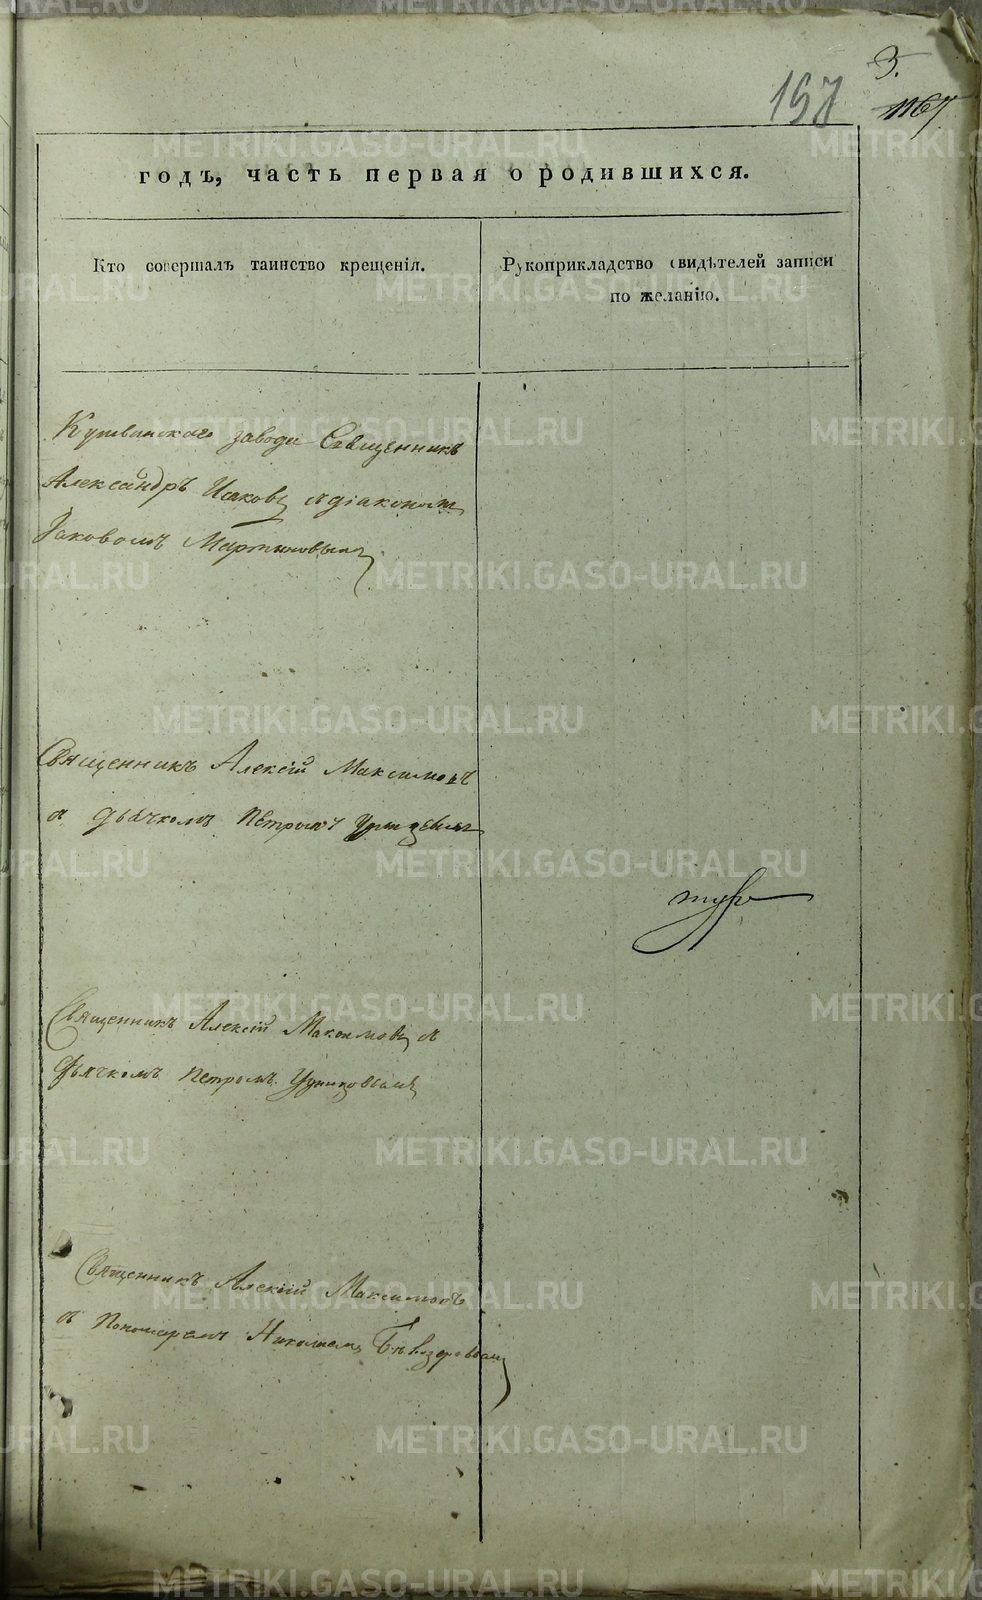 157
3.
1167
годъ, часть первая о родившихся.
Кто совершалъ таинство крещенія.
Рукоприкладство свидѣтелей записи
по желанію.
Кушвинскаго завода Священникъ
Александръ Исаковъ діакономъ
Іаковомъ Мартиновымъ
Священникъ Алексій Максимовъ
дьячкомъ Петромъ
Священникъ Алексій Максимовъ
Дьячкомъ Петромъ
Священникъ Алексій Максимовъ
Пономаремъ Николаемъ
METRIKI.GASO-URAL.RU